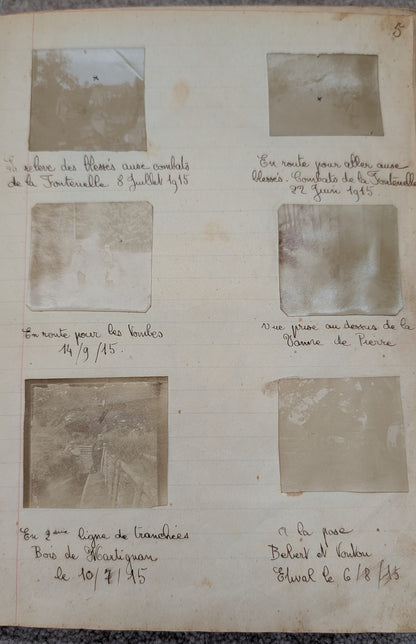 5
La relève des blessés aux combats
de la Fontenelle 8 Juillet 1915
En route pour aller aux
blessés. Combats de la Fontenelle
22 Juin 1915
En route pour les
14/9/15.
Vue prise au dessus de la
de Pierre
En 2ème ligne de tranchées
Bois de Martignan
le 10/7/15
A la pose
Bebert et Toutou
Etival le 6/8/15